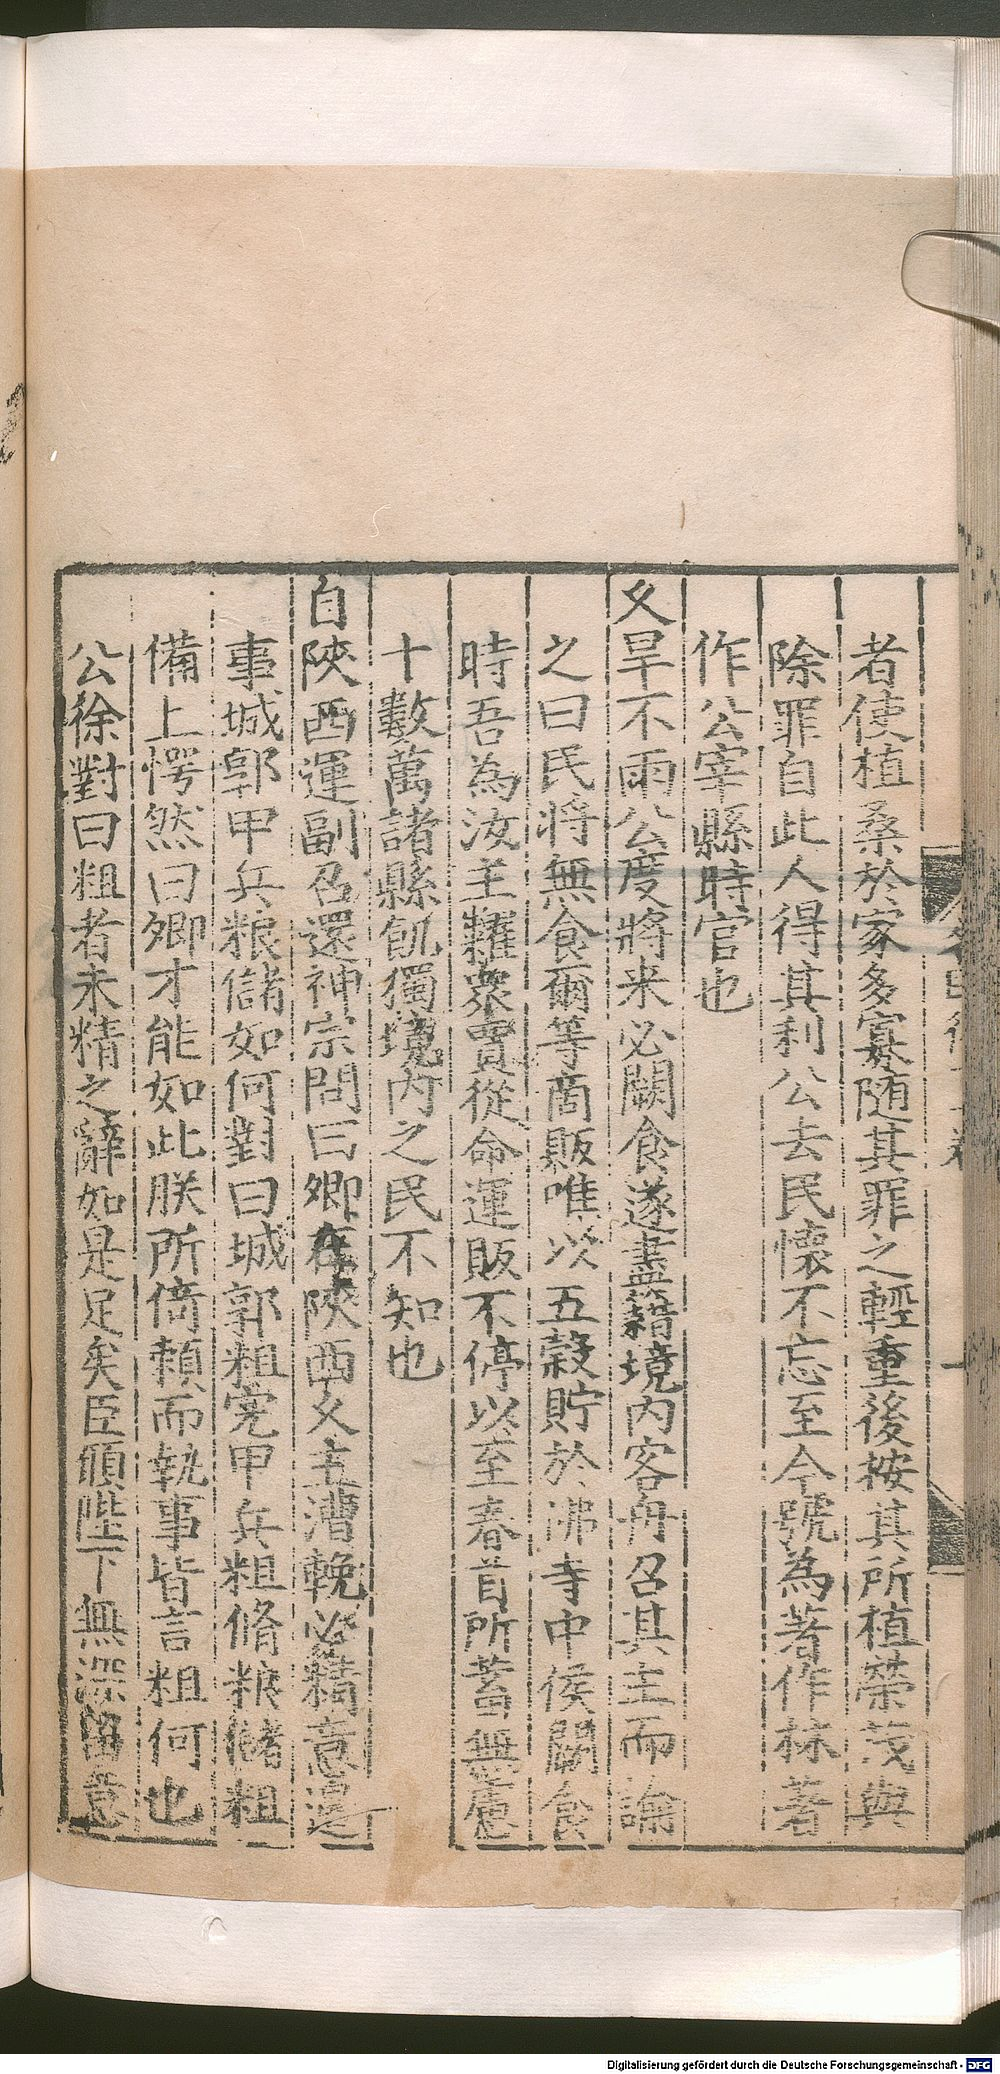 者使植桑於家多寡随其罪之輕重後按其所植榮茂與
除罪自此人得其利公去民懷不忘至今號為著作林著
作公宰縣時官也
久旱不雨公度將来必闕食遂盡籍境内客舟召其主而諭
之曰民将無食爾等商販唯以五穀貯於佛寺中候闕食
時吾為汝主糶衆賈從命運販不停以至春首所蓄無慮
十數萬諸縣飢獨境内之民不知也
自陜西運副召還神宗問曰卿在陜西久主漕輓必精意邊
事城郭甲兵粮儲如何對曰城郭粗完甲兵粗脩粮儲粗
備上愕然曰卿才能如此朕所倚賴而執事皆言粗何也
公徐對曰粗者未精之辭如是足矣臣願陛下無深留意
Digitalisierung gefördert durch die Deutsche Forschungsgemeinschaft - DFG